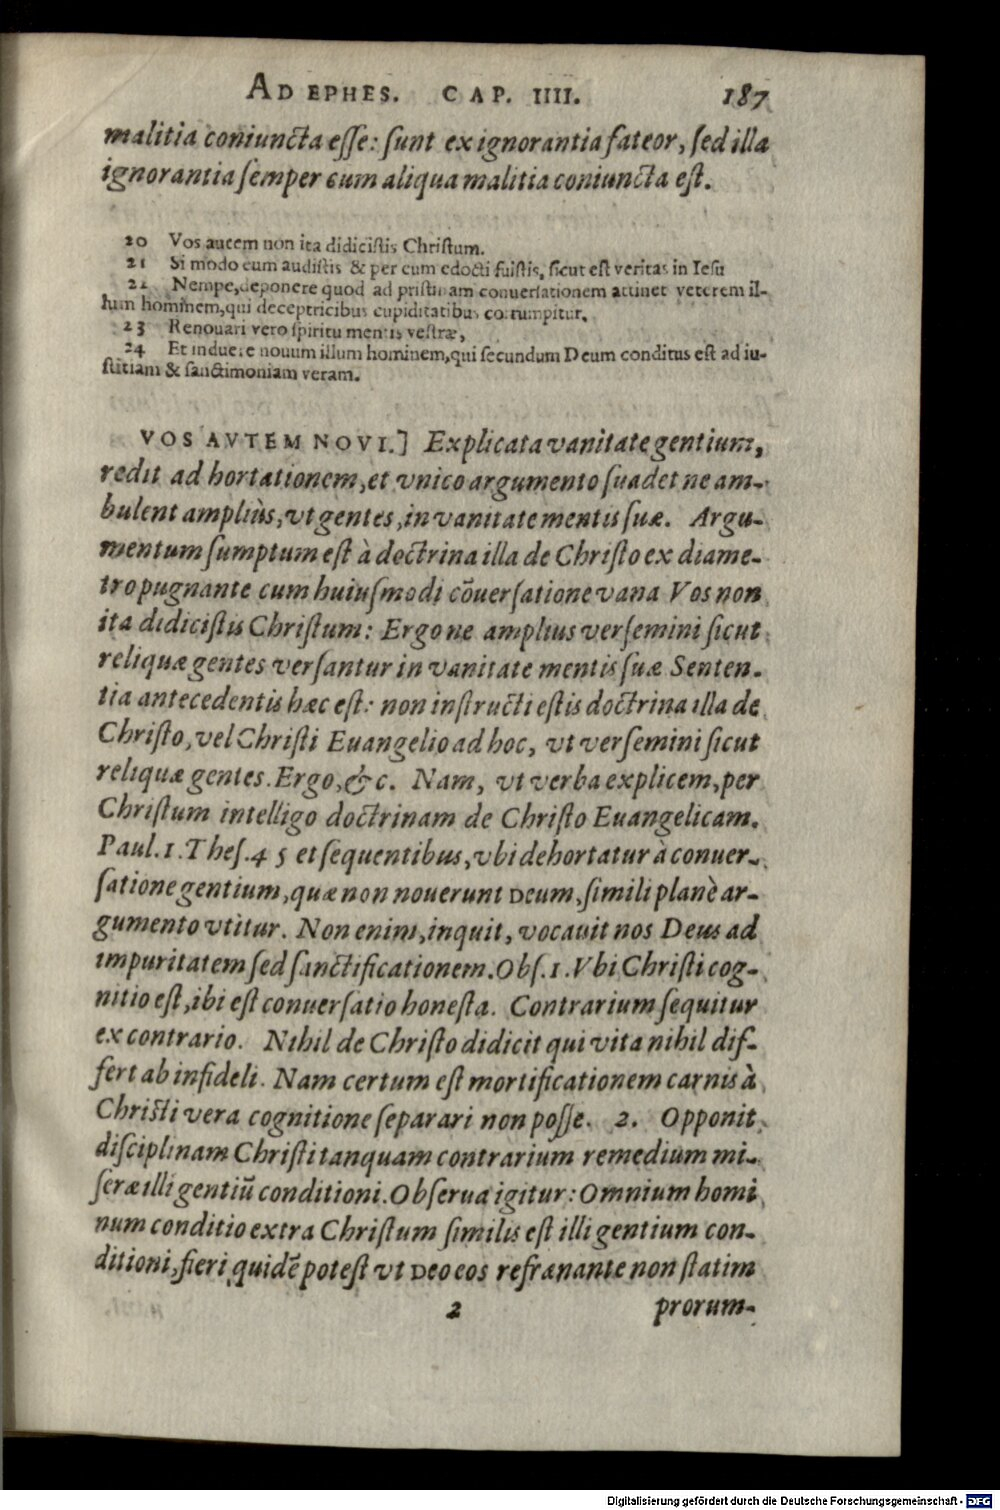 AD EPHES. CAP. IIII. 187
malitia coniuncta esse: sunt ex ignorantia fateor, sed illa
ignorantia semper cum aliqua malitia coniuncta est.
20 Vos autem non ita didicistis Christum.
21 Si modo eum audistis & per eum edocti fuistis, sicut est veritas in Iesu
22 Nempe, deponere quod ad pristinam conuersationem attinet veterem il-
lum hominem, qui deceptricibus cupiditatibus corrumpitur,
23 Renouari vero spiritu mentis vestræ,
24 Et induere nouum illum hominem, qui secundum Deum conditus est ad iu-
stitiam & sanctimoniam veram.
VOS AVTEM NOVI.] Explicata vanitate gentium,
redit ad hortationem, et vnico argumento suadet ne am-
bulent ampliùs, vt gentes, in vanitate mentis suæ. Argu-
mentum sumptum est à doctrina illa de Christo ex diame-
tro pugnante cum huiusmodi cõuersatione vana Vos non
ita didicistis Christum: Ergo ne amplius versemini sicut
reliquæ gentes versantur in vanitate mentis suæ Senten-
tia antecedentis hæc est: non instructi estis doctrina illa de
Christo, vel Christi Euangelio ad hoc, vt versemini sicut
reliquæ gentes. Ergo, &c. Nam, vt verba explicem, per
Christum intelligo doctrinam de Christo Euangelicam.
Paul. 1. Thes. 4 5 et sequentibus, vbi dehortatur à conuer-
satione gentium, quæ non nouerunt DEum, simili planè ar-
gumento vtitur. Non enim, inquit, vocauit nos Deus ad
impuritatem sed sanctificationem. Obs. 1. Vbi Christi cog-
nitio est, ibi est conuersatio honesta. Contrarium sequitur
ex contrario. Nihil de Christo didicit qui vita nihil dif-
fert ab infideli. Nam certum est mortificationem carnis à
Christi vera cognitione separari non posse. 2. Opponit
disciplinam Christi tanquam contrarium remedium mi-
seræ illi gentiũ conditioni. Obserua igitur: Omnium homi
num conditio extra Christum similis est illi gentium con-
ditioni, fieri quidẽ potest vt DEO eos refrænante non statim
2 prorum-
Digitalisierung gefördert durch die Deutsche Forschungsgemeinschaft - DFG